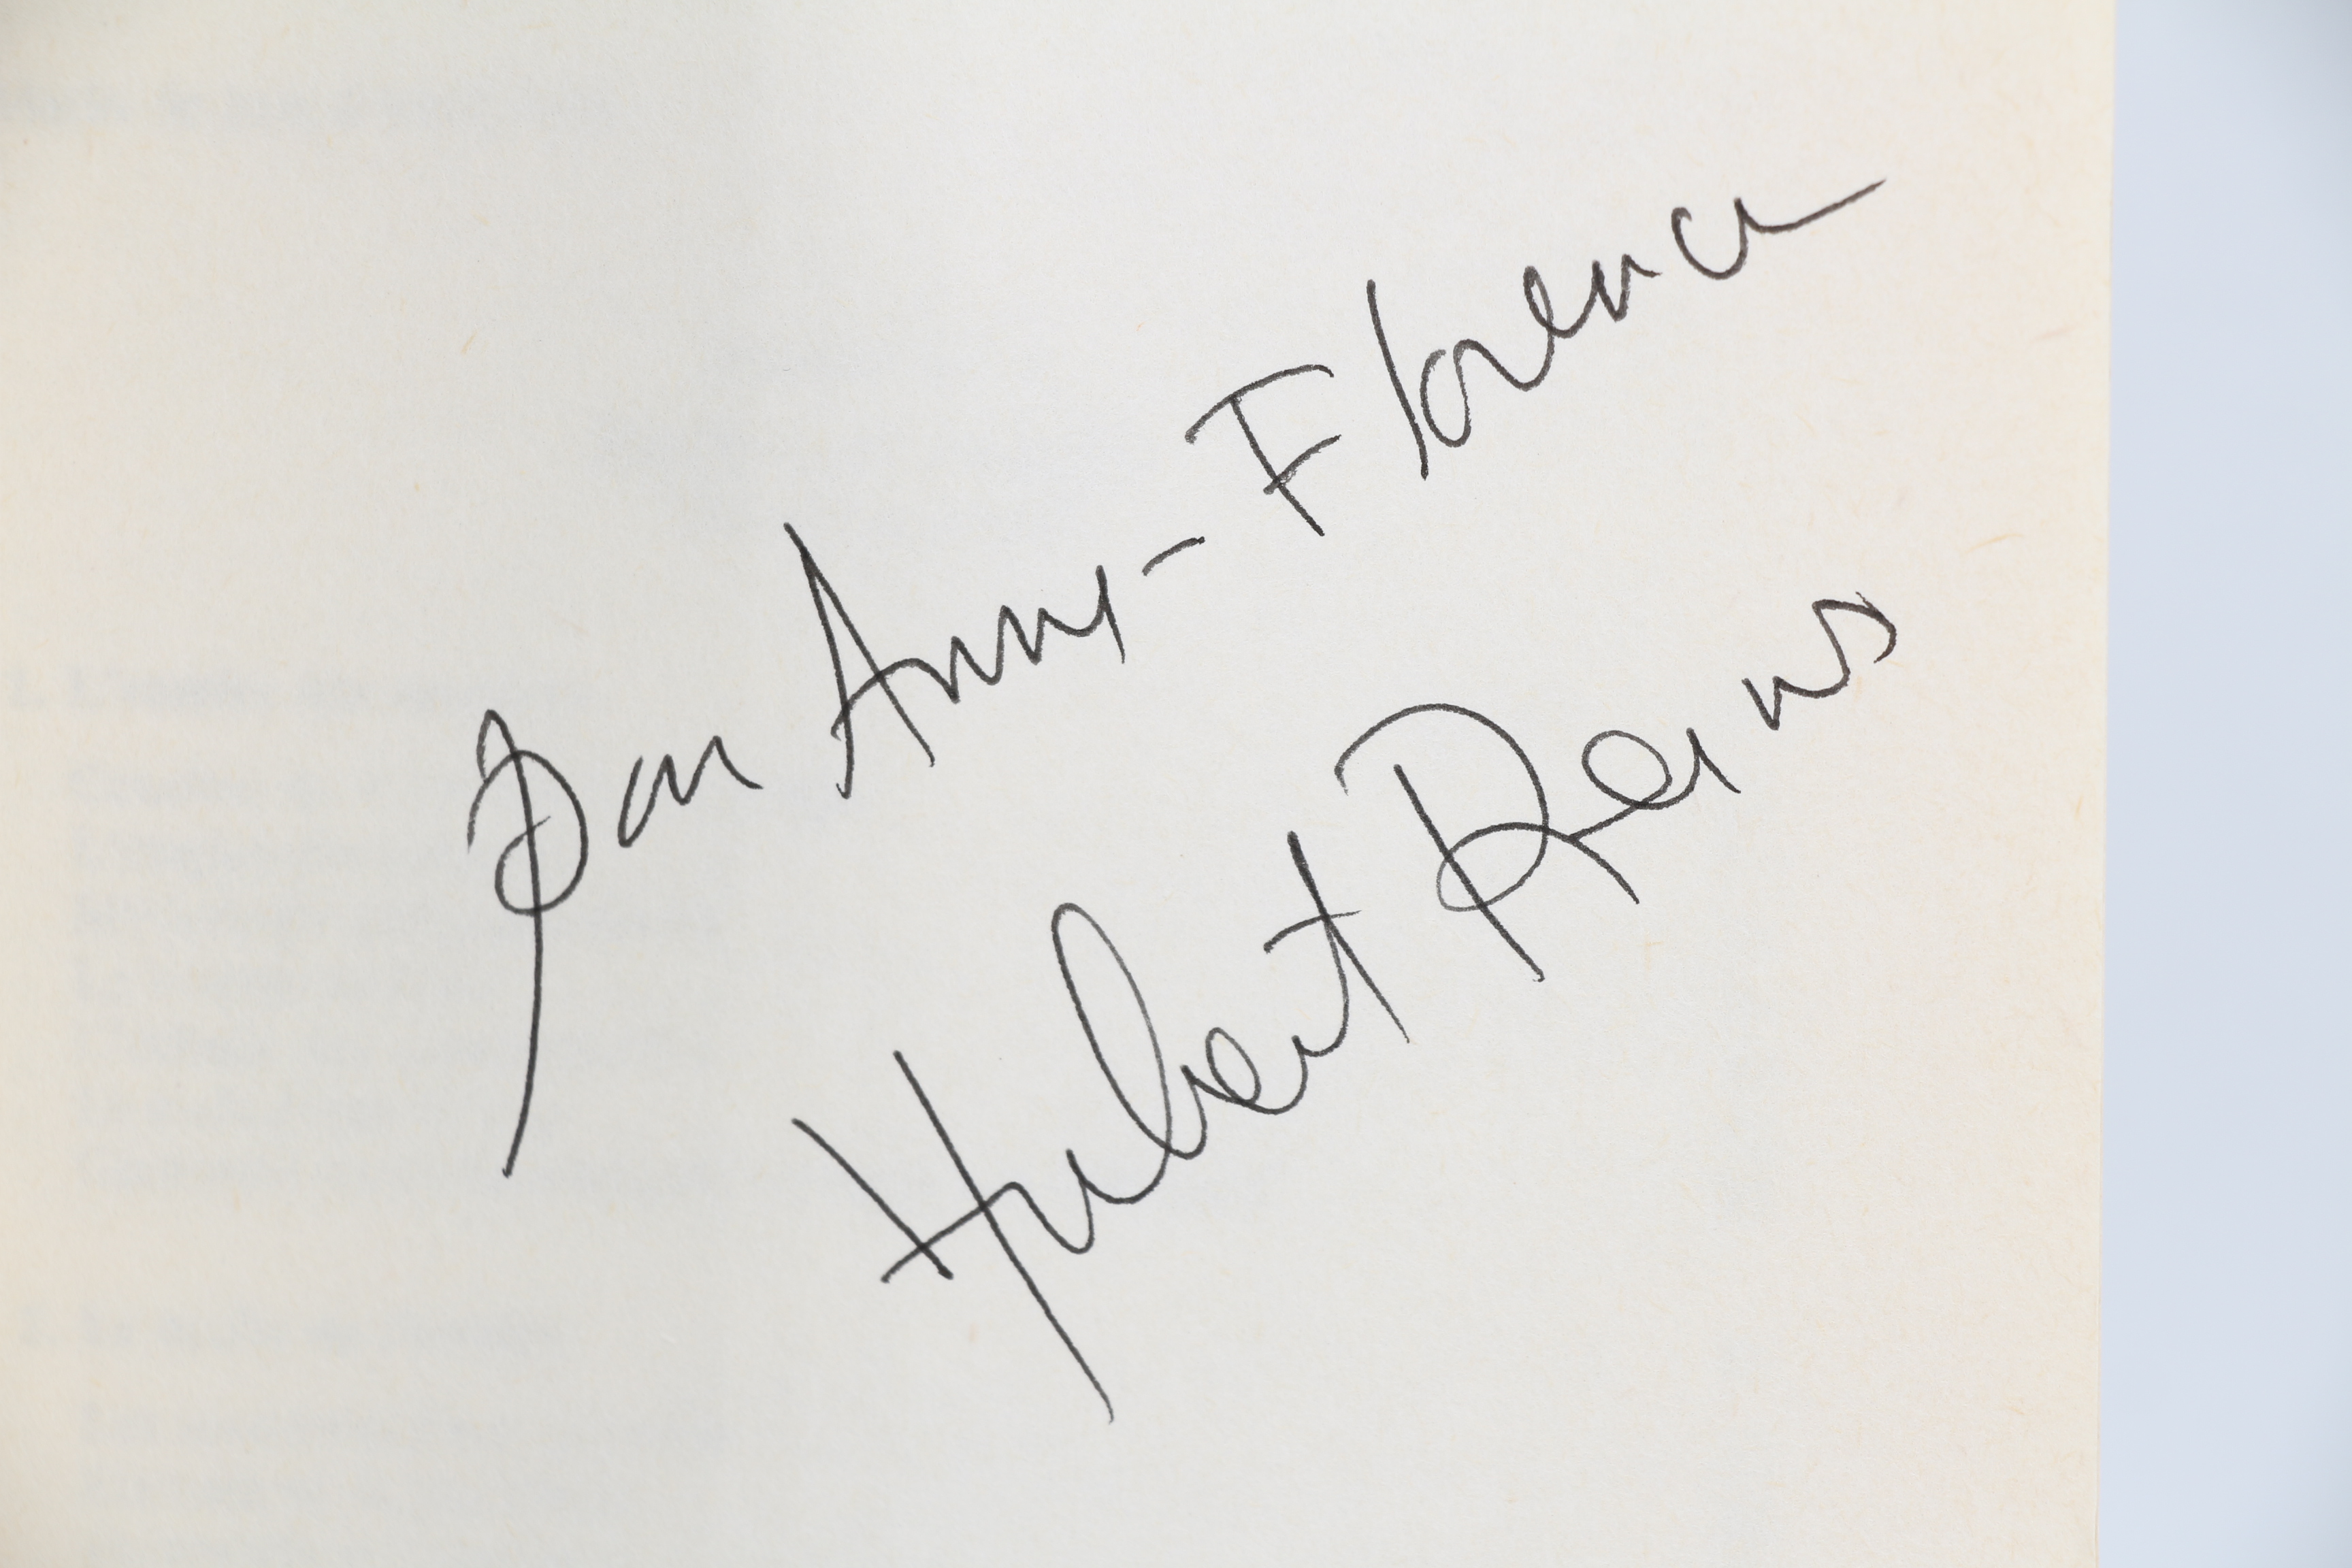 Pour Anne-Florence
Hubert Reeves